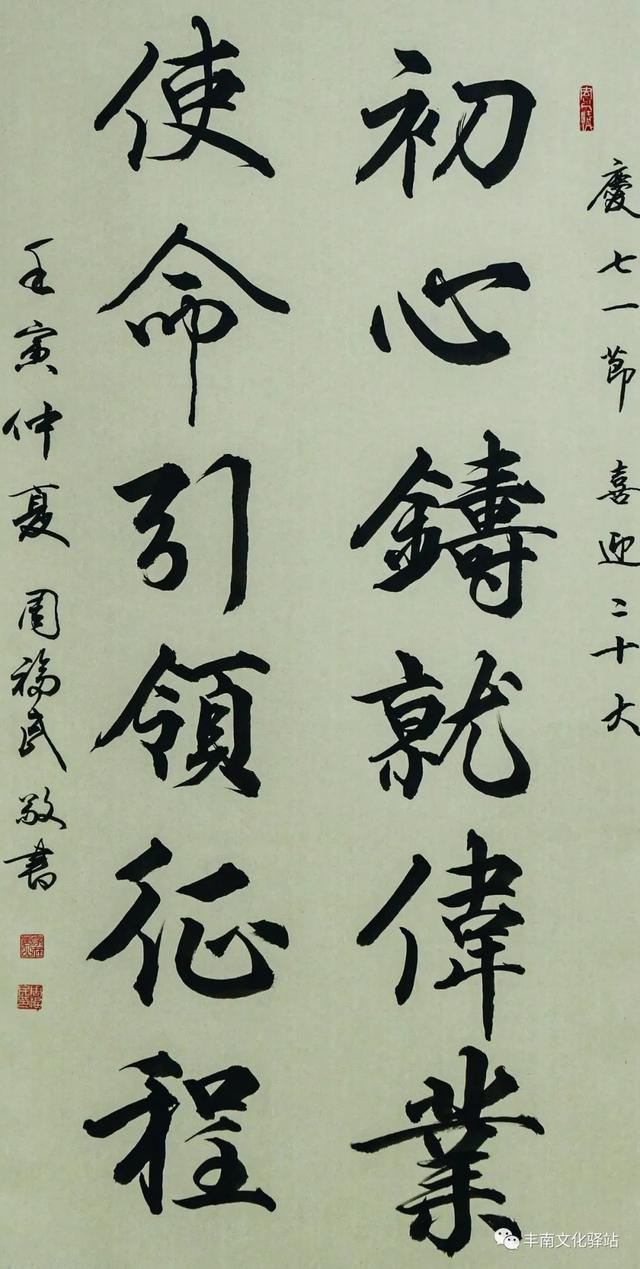 慶七一節 喜迎二十大
初心鑄就偉業
使命引領征程
壬寅仲夏 周福民敬書
丰南文化驿站